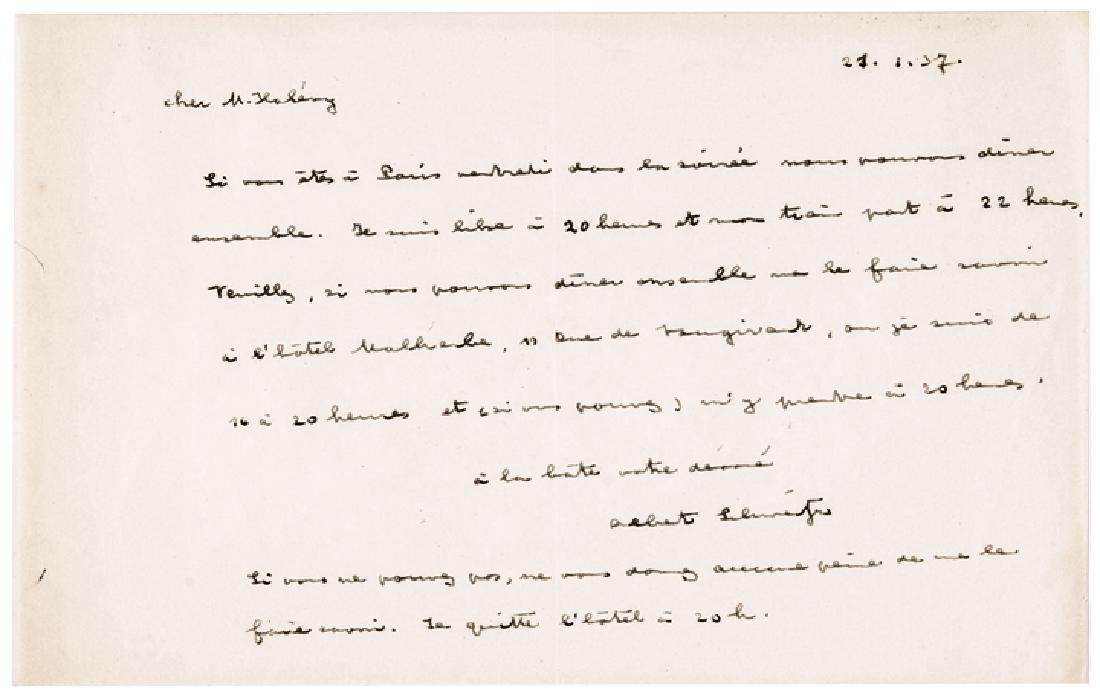 27. 1. 37.
cher M. Halévy
Si vous êtes à Paris vendredi dans la soirée nous pouvons dîner
ensemble. Je suis libre à 20 heures et mon train part à 22 heures.
Veuillez, si nous pouvons dîner ensemble me le faire savoir
à l'hôtel Malherbe, 11 Rue de Vaugirard, où je suis de
16 à 20 heures et (si vous pouvez) m'y prendre à 20 heures.
à la hâte votre dévoué
Albert Schweitzer
Si vous ne pouvez pas, ne vous donnez aucune peine de me le
faire savoir. Je quitte l'hôtel à 20 h.